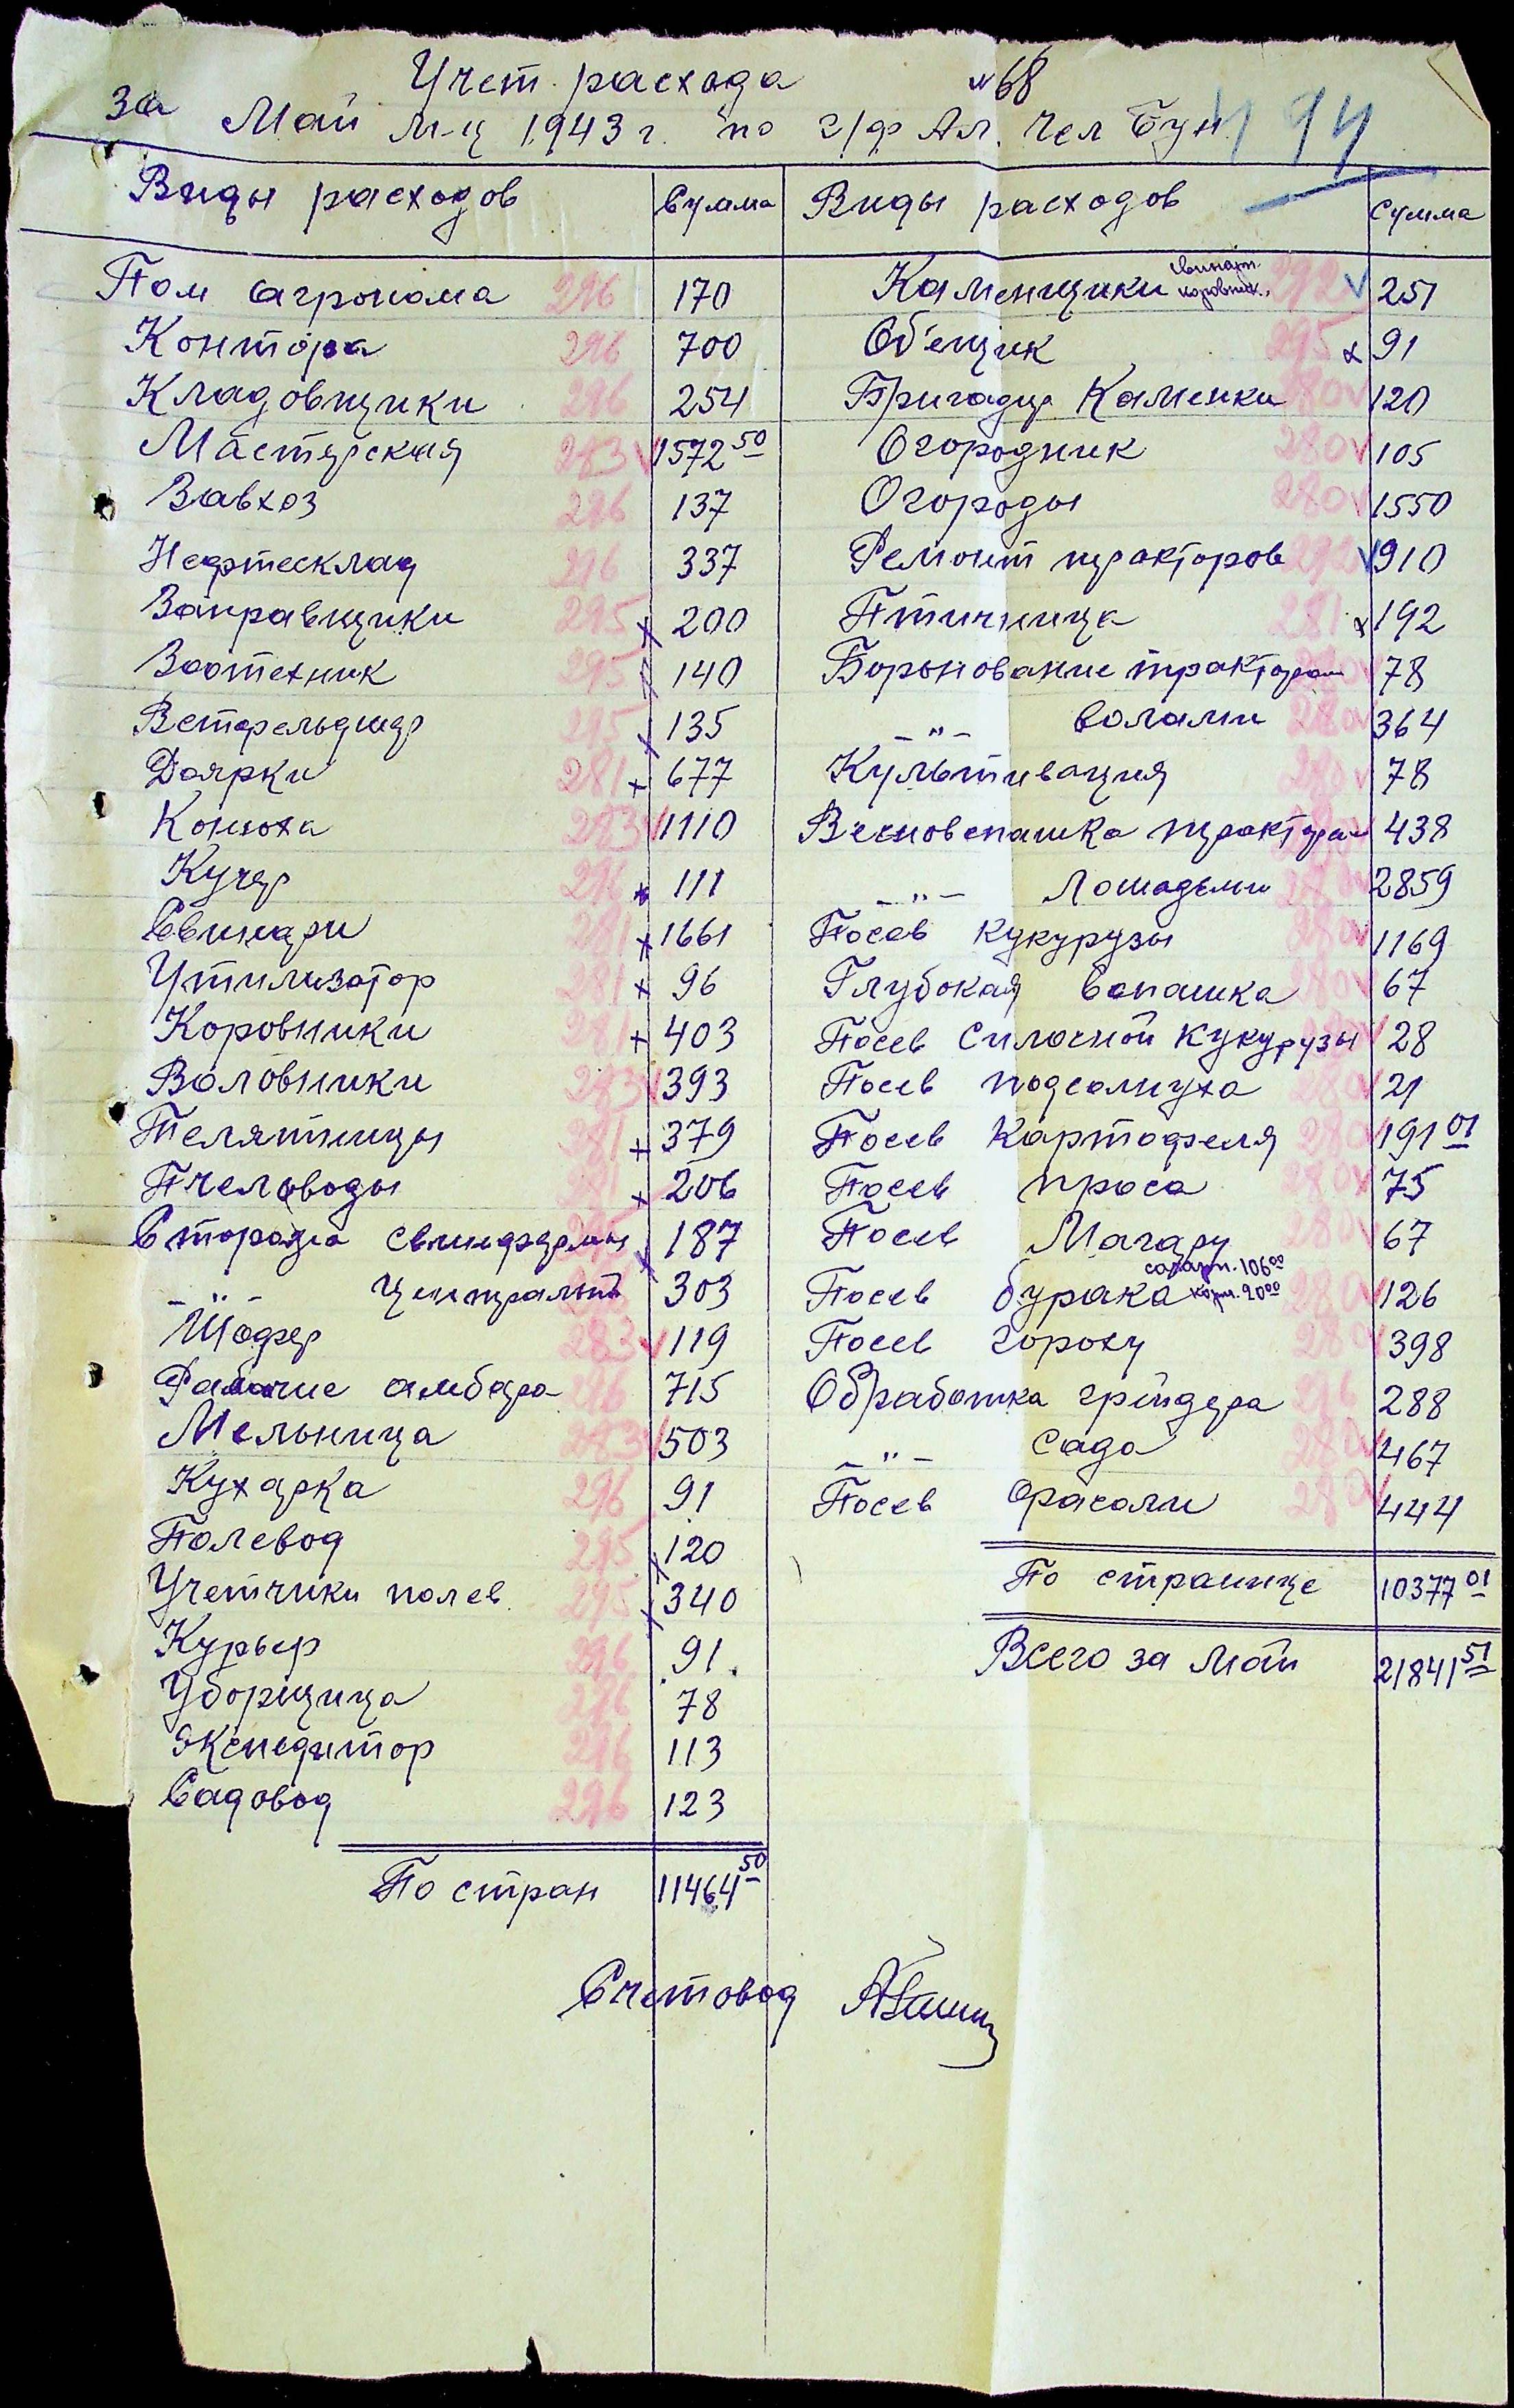 Учет расхода №68
за Май м-ц 1943 г. по г/ф Ал. Чел Бун 194
Виды расходов Сумма
Пом агронома 296 170
Контора 296 700
Кладовщики 296 254
Мастерская 283 v 1572 50
Завхоз 296 137
Нефтесклад 296 337
Заправщики 295 x 200
Зоотехник 295 x 140
Ветфельдшер 295 x 135
Доярки 281 x 677
Конюха 283 v 1110
Кучер 296 x 111
Свинари 281 x 1661
Утилизатор 281 x 96
Коровники 281 x 403
Воловники 283 v 393
Телятницы 281 x 379
Пчеловоды 281 x 206
Сторожа свинофермы 295 x 187
– " – Центральн 303
Шофер 283 v 119
Рабочие амбара 296 715
Мельница 283 v 503
Кухарка 296 91
Полевод 295 x 120
Учетчики полев. 295 x 340
Курьер 296 91.
Уборщица 296 78
Экспедитор 296 113
Садовод 296 123
По стран 11464 50
Виды расходов Сумма
Каменщики свинарн. коровник. 292 v 251
Об'ещик 295 x 91
Бригадир Каменки 280 v 120
Огородник 280 v 105
Огороды 280 v 1550
Ремонт тракторов 292 v 910
Птичница 281 x 192
Боронование трактором 78
– " – волами 280 364
Культивация 280 v 78
Весновспашка трактором 438
– " – лошадьми 280 2859
Посев кукурузы 280 v 1169
Глубокая вспашка 280 v 67
Посев силосной кукурузы v 28
Посев подсолнуха 280 v 21
Посев Картофеля 280 v 191 01
Посев проса 280 v 75
Посев Могару 280 v 67
Посев бурака сахарн. 106 00 корм. 20 00 280 v 126
Посев гороху 280 v 398
Обработка грейдера 296 288
– " – сада 280 v 467
Посев фасоли 280 v 444
По странице 10377 01
Всего за Май 21841 51
Счетовод